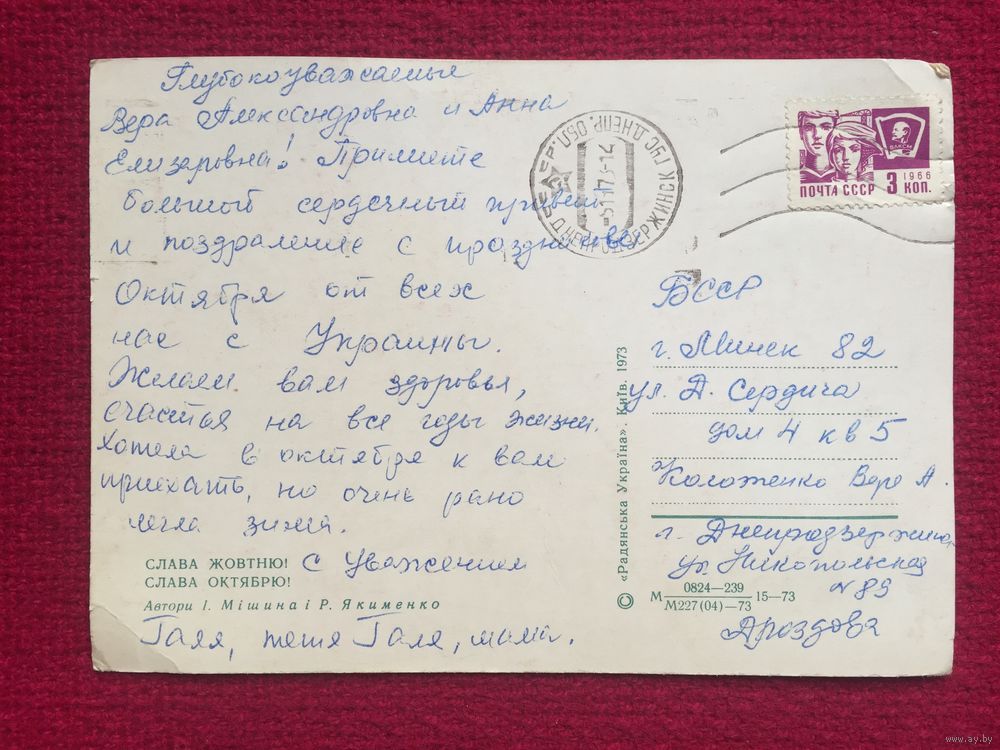 Глубокоуважаемые
Вера Александровна и Анна
Елизаровна! Примите
большой сердечный привет
и поздравление с праздником
Октября от всех
нас с Украины.
Желаем вам здоровья,
счастья на все годы жизни.
Хотела в октябре к вам
приехать, но очень рано
легла зима.
С Уважением
Галя, тетя Галя, мама.
СЛАВА ЖОВТНЮ!
СЛАВА ОКТЯБРЮ!
Автори І. Мішина і Р. Якименко
ДНЕПР. ОБЛ.
5 11 73-14
ПОЧТА СССР 3 КОП.
1966
ВЛКСМ
БССР
г. Минск 82
ул. Сердича
дом 4 кв 5
Коложенко Вере А.
г. Днепродзержинск
ул. Никопольская
№ 89
Дроздова
© «Радянська Україна». Київ. 1973
М 0824—239 15—73
М227(04)—73
www.ay.by